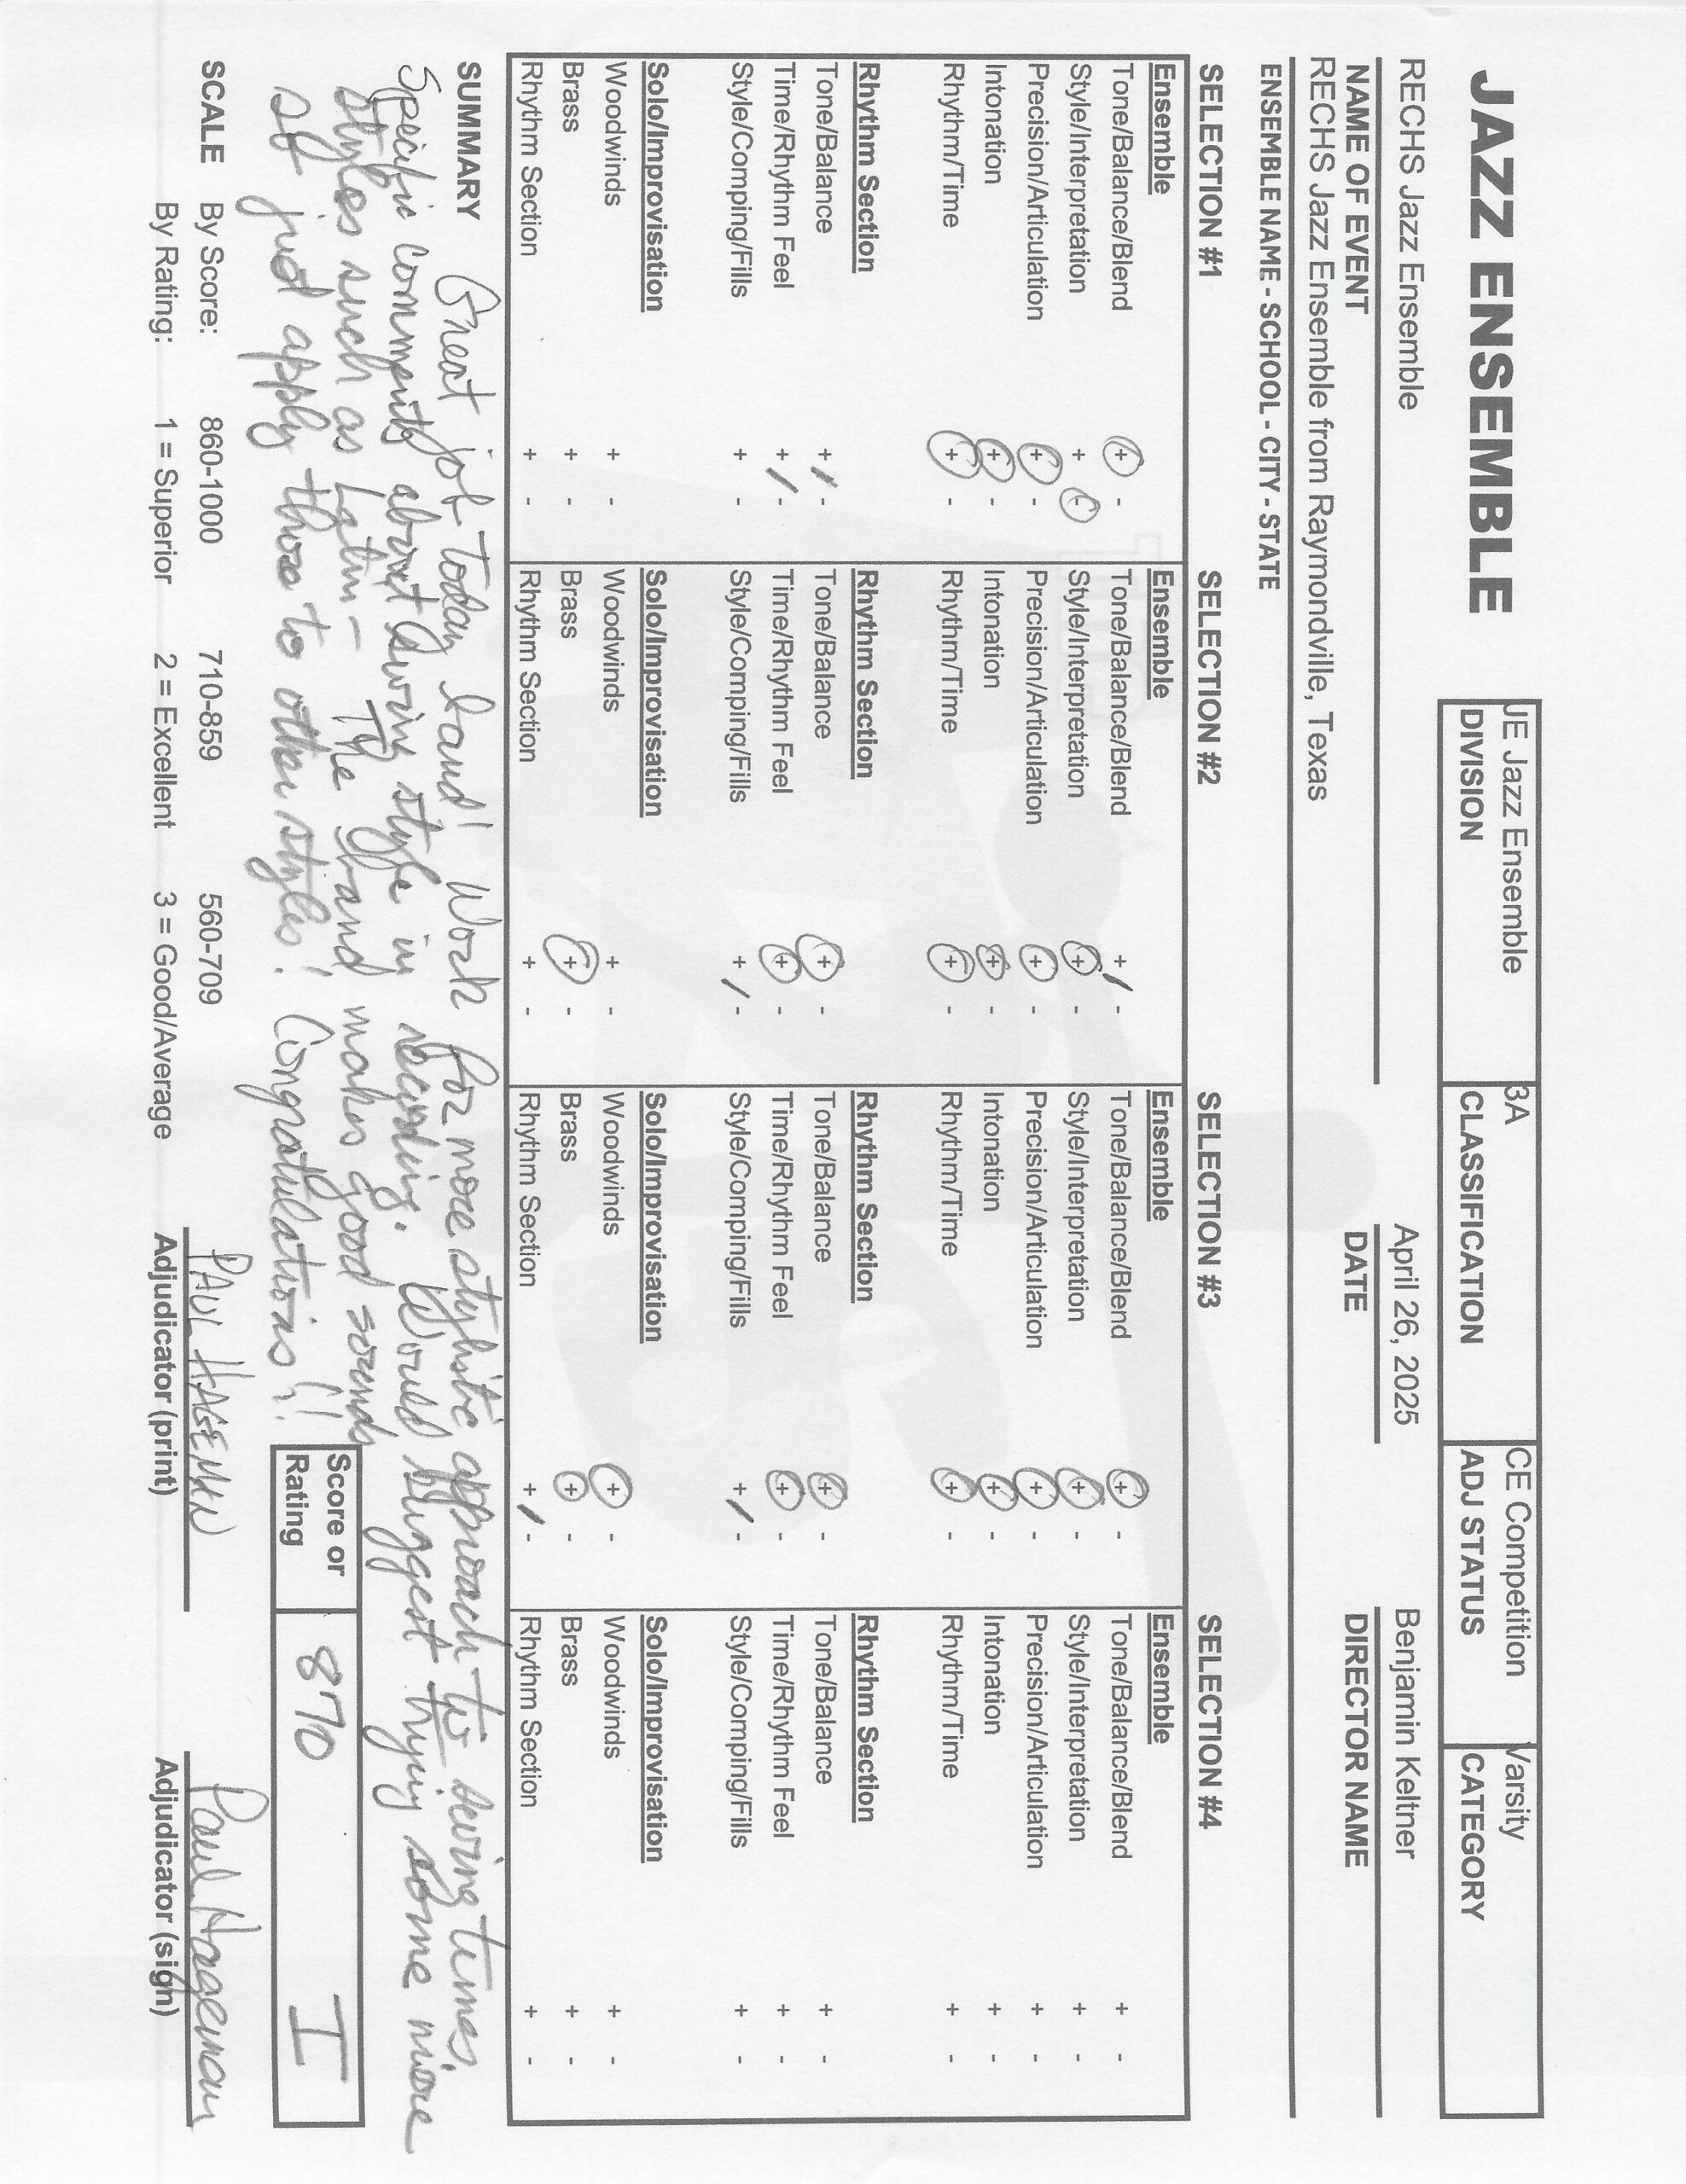 JAZZ ENSEMBLE
JE Jazz Ensemble 3A CE Competition Varsity
DIVISION CLASSIFICATION ADJ STATUS CATEGORY
RECHS Jazz Ensemble April 26, 2025 Benjamin Keltner
NAME OF EVENT DATE DIRECTOR NAME
RECHS Jazz Ensemble from Raymondville, Texas
ENSEMBLE NAME - SCHOOL - CITY - STATE
SELECTION #1 SELECTION #2 SELECTION #3 SELECTION #4
Ensemble Ensemble Ensemble Ensemble
Tone/Balance/Blend + - Tone/Balance/Blend + - Tone/Balance/Blend + - Tone/Balance/Blend + -
Style/Interpretation + - Style/Interpretation + - Style/Interpretation + - Style/Interpretation + -
Precision/Articulation + - Precision/Articulation + - Precision/Articulation + - Precision/Articulation + -
Intonation + - Intonation + - Intonation + - Intonation + -
Rhythm/Time + - Rhythm/Time + - Rhythm/Time + - Rhythm/Time + -
Rhythm Section Rhythm Section Rhythm Section Rhythm Section
Tone/Balance + - Tone/Balance + - Tone/Balance + - Tone/Balance + -
Time/Rhythm Feel + - Time/Rhythm Feel + - Time/Rhythm Feel + - Time/Rhythm Feel + -
Style/Comping/Fills + - Style/Comping/Fills + - Style/Comping/Fills + - Style/Comping/Fills + -
Solo/Improvisation Solo/Improvisation Solo/Improvisation Solo/Improvisation
Woodwinds + - Woodwinds + - Woodwinds + - Woodwinds + -
Brass + - Brass + - Brass + - Brass + -
Rhythm Section + - Rhythm Section + - Rhythm Section + - Rhythm Section + -
SUMMARY Great job today band! Work for more stylistic approach to swing tunes.
Specific comments about swing style in recording. Would suggest trying some more
styles such as Latin - The band makes good sounds
so just apply those to other styles! Congratulations!!
Score or Rating 870 I
SCALE By Score: 860-1000 710-859 560-709
By Rating: 1 = Superior 2 = Excellent 3 = Good/Average
PAUL HAGEMAN Paul Hageman
Adjudicator (print) Adjudicator (sign)